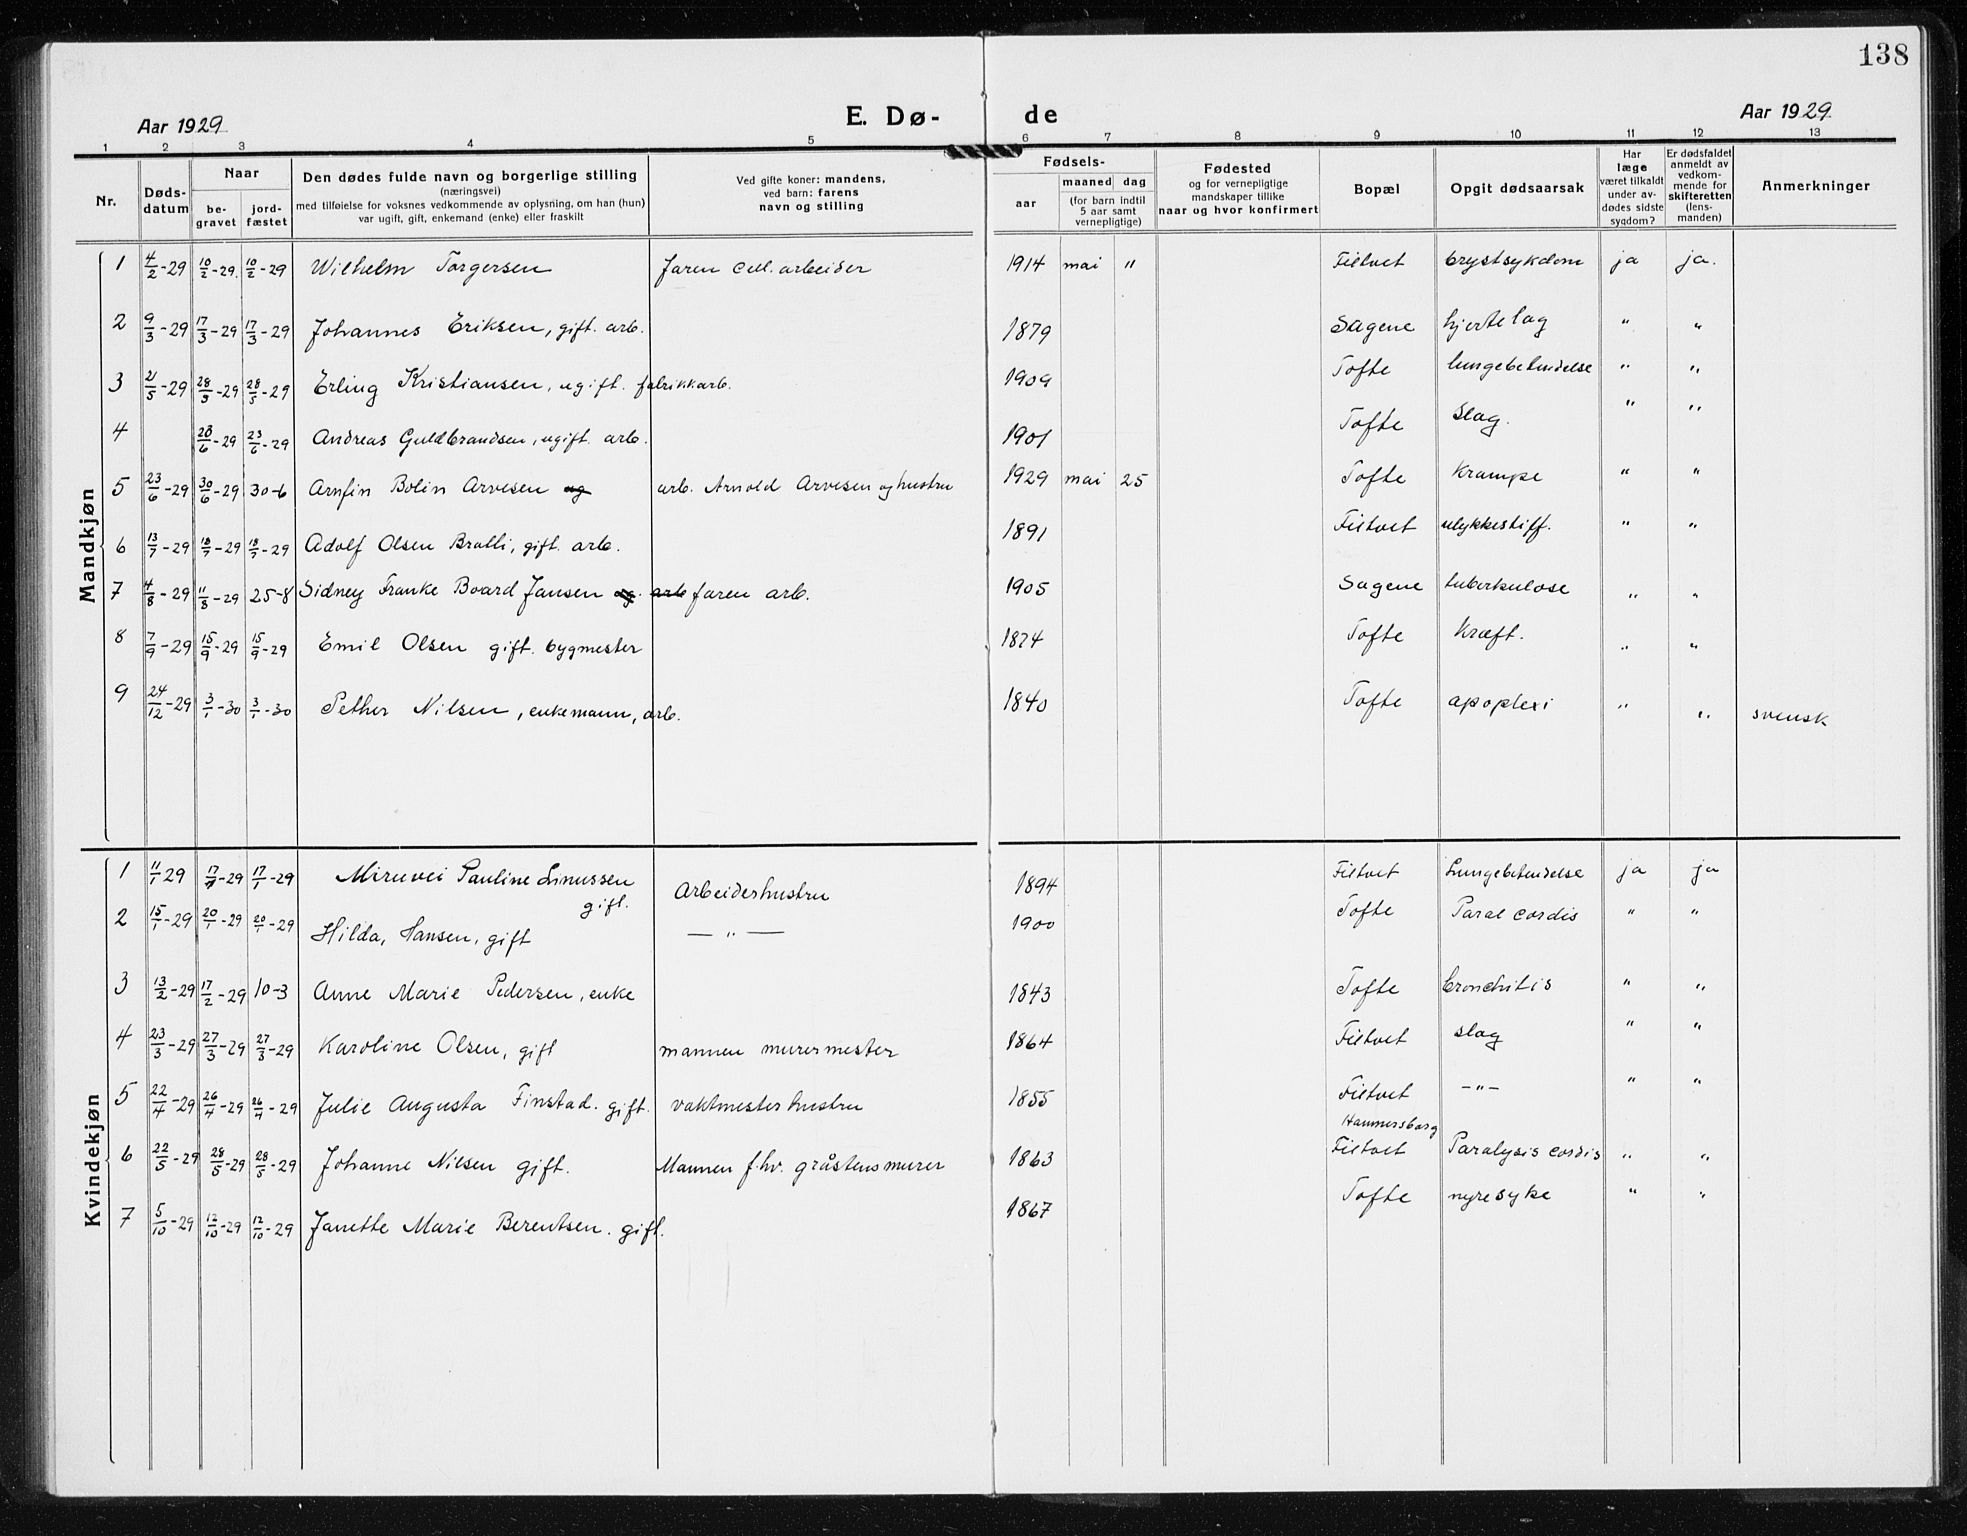 138
Aar 1929 E. Dø- de Aar 1929
1 2 3 4 5 6 7 8 9 10 11 12 13
Nr.
Døds-
datum
Naar
be-
gravet
jord-
fæstet
Den dødes fulde navn og borgerlige stilling
(næringsvei)
med tilføielse for voksnes vedkommende av oplysning, om han (hun)
var ugift, gift, enkemand (enke) eller fraskilt
Ved gifte koner: mandens,
ved barn: farens
navn og stilling
Fødsels-
aar
maaned dag
(for barn indtil
5 aar samt
vernepligtige)
Fødested
og for vernepligtige
mandskaper tillike
naar og hvor konfirmert
Bopæl
Opgit dødsaarsak
Har
læge
været tilkaldt
under av-
dødes sidste
sygdom?
Er dødsfaldet
anmeldt av
vedkom-
mende for
skifteretten
(lens-
manden)
Anmerkninger
Mandkjøn
1 4/2-29 10/2-29. 10/2-29 Wilhelm Torgersen Faren cell. arbeider 1914 mai " Filtvet brystsykdom ja ja.
2 9/3-29 17/3-29 17/3-29 Johannes Eriksen, gift. arb. 1879 Sagene hjertelag " "
3 21/5-29 28/5-29 28/5-29 Erling Kristiansen, ugift. fabrikkarb. 1909 Tofte lungebetendelse " "
4 23/6-29 23/6-29 Andreas Guldbrandsen, ugift. arb. 1901 Tofte slag. " "
5 23/6-29 30/6-29 30-6 Arnfin Bolin Arvesen ug arb. Arnold Arvesen og hustru 1929 mai 25 Tofte Krampe " "
6 13/7-29 18/7-29 18/7-29 Adolf Olsen Bratli, gift. arb. 1891 Filtvet ulykkestilf. " "
7 4/8-29 11/8-29 25-8 Sidney Franke Board Jansen ug. arb faren arb. 1905 Sagene tuberkulose " "
8 7/9-29 15/9-29 15/9-29 Emil Olsen gift. bygmester 1874 Tofte Kræft. " "
9 24/12-29 3/1-30 3/1-30 Pether Nilsen, enkemann, arb. 1840 Tofte apoplexi " " svensk
Kvindekjøn
1 11/1 29 17/1-29 17/1-29 Pauline Linussen gift. Arbeiderhustru 1894 Filtvet Lungebetendelse ja ja
2 15/1-29 20/1-29 20/1-29 Hilda, Hansen, gift — " — 1900 Tofte Paral cordis " "
3 13/2-29 17/2-29 10-3 Anne Marie Pedersen, enke 1843 Tofte bronchitis " "
4 23/3-29 27/3-29 27/3-29 Karoline Olsen, gift mannen murermester 1864 Filtvet slag " "
5 22/4-29 26/4-29 26/4-29 Julie Augusta Finstad. gift. vaktmesterhustru 1855 Filtvet -"- " "
Hammersborg
6 22/5-29 28/5-29 28/5-29 Johanne Nilsen gift. Mannen f.hv. gråstensmurer 1863 Filtvet Paralysis cordis " "
7 5/10-29 12/10-29 12/10-29 Janette Marie Berentsen. gift. 1867 Tofte nyresyke " "